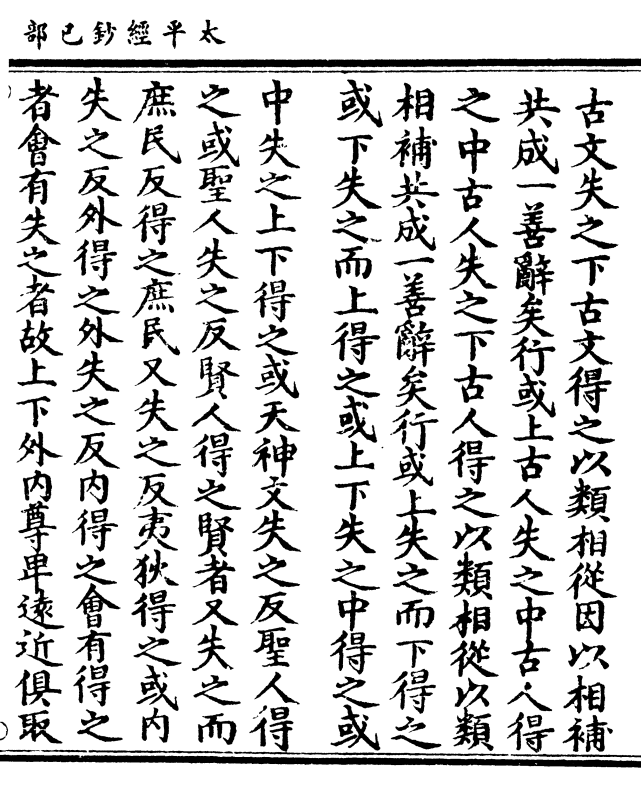 太平經鈔已部
古文失之下古文得之以類相從因以相補
共成一善辭矣行或上古人失之中古人得
之中古人失之下古人得之以類相從以類
相補共成一善辭矣行或上失之而下得之
或下失之而上得之或上下失之中得之或
中失之上下得之或天神文失之反聖人得
之或聖人失之反賢人得之賢者又失之而
庶民反得之庶民又失之反夷狄得之或內
失之反外得之外失之反內得之會有得之
者會有失之者故上下外內尊卑遠近俱取